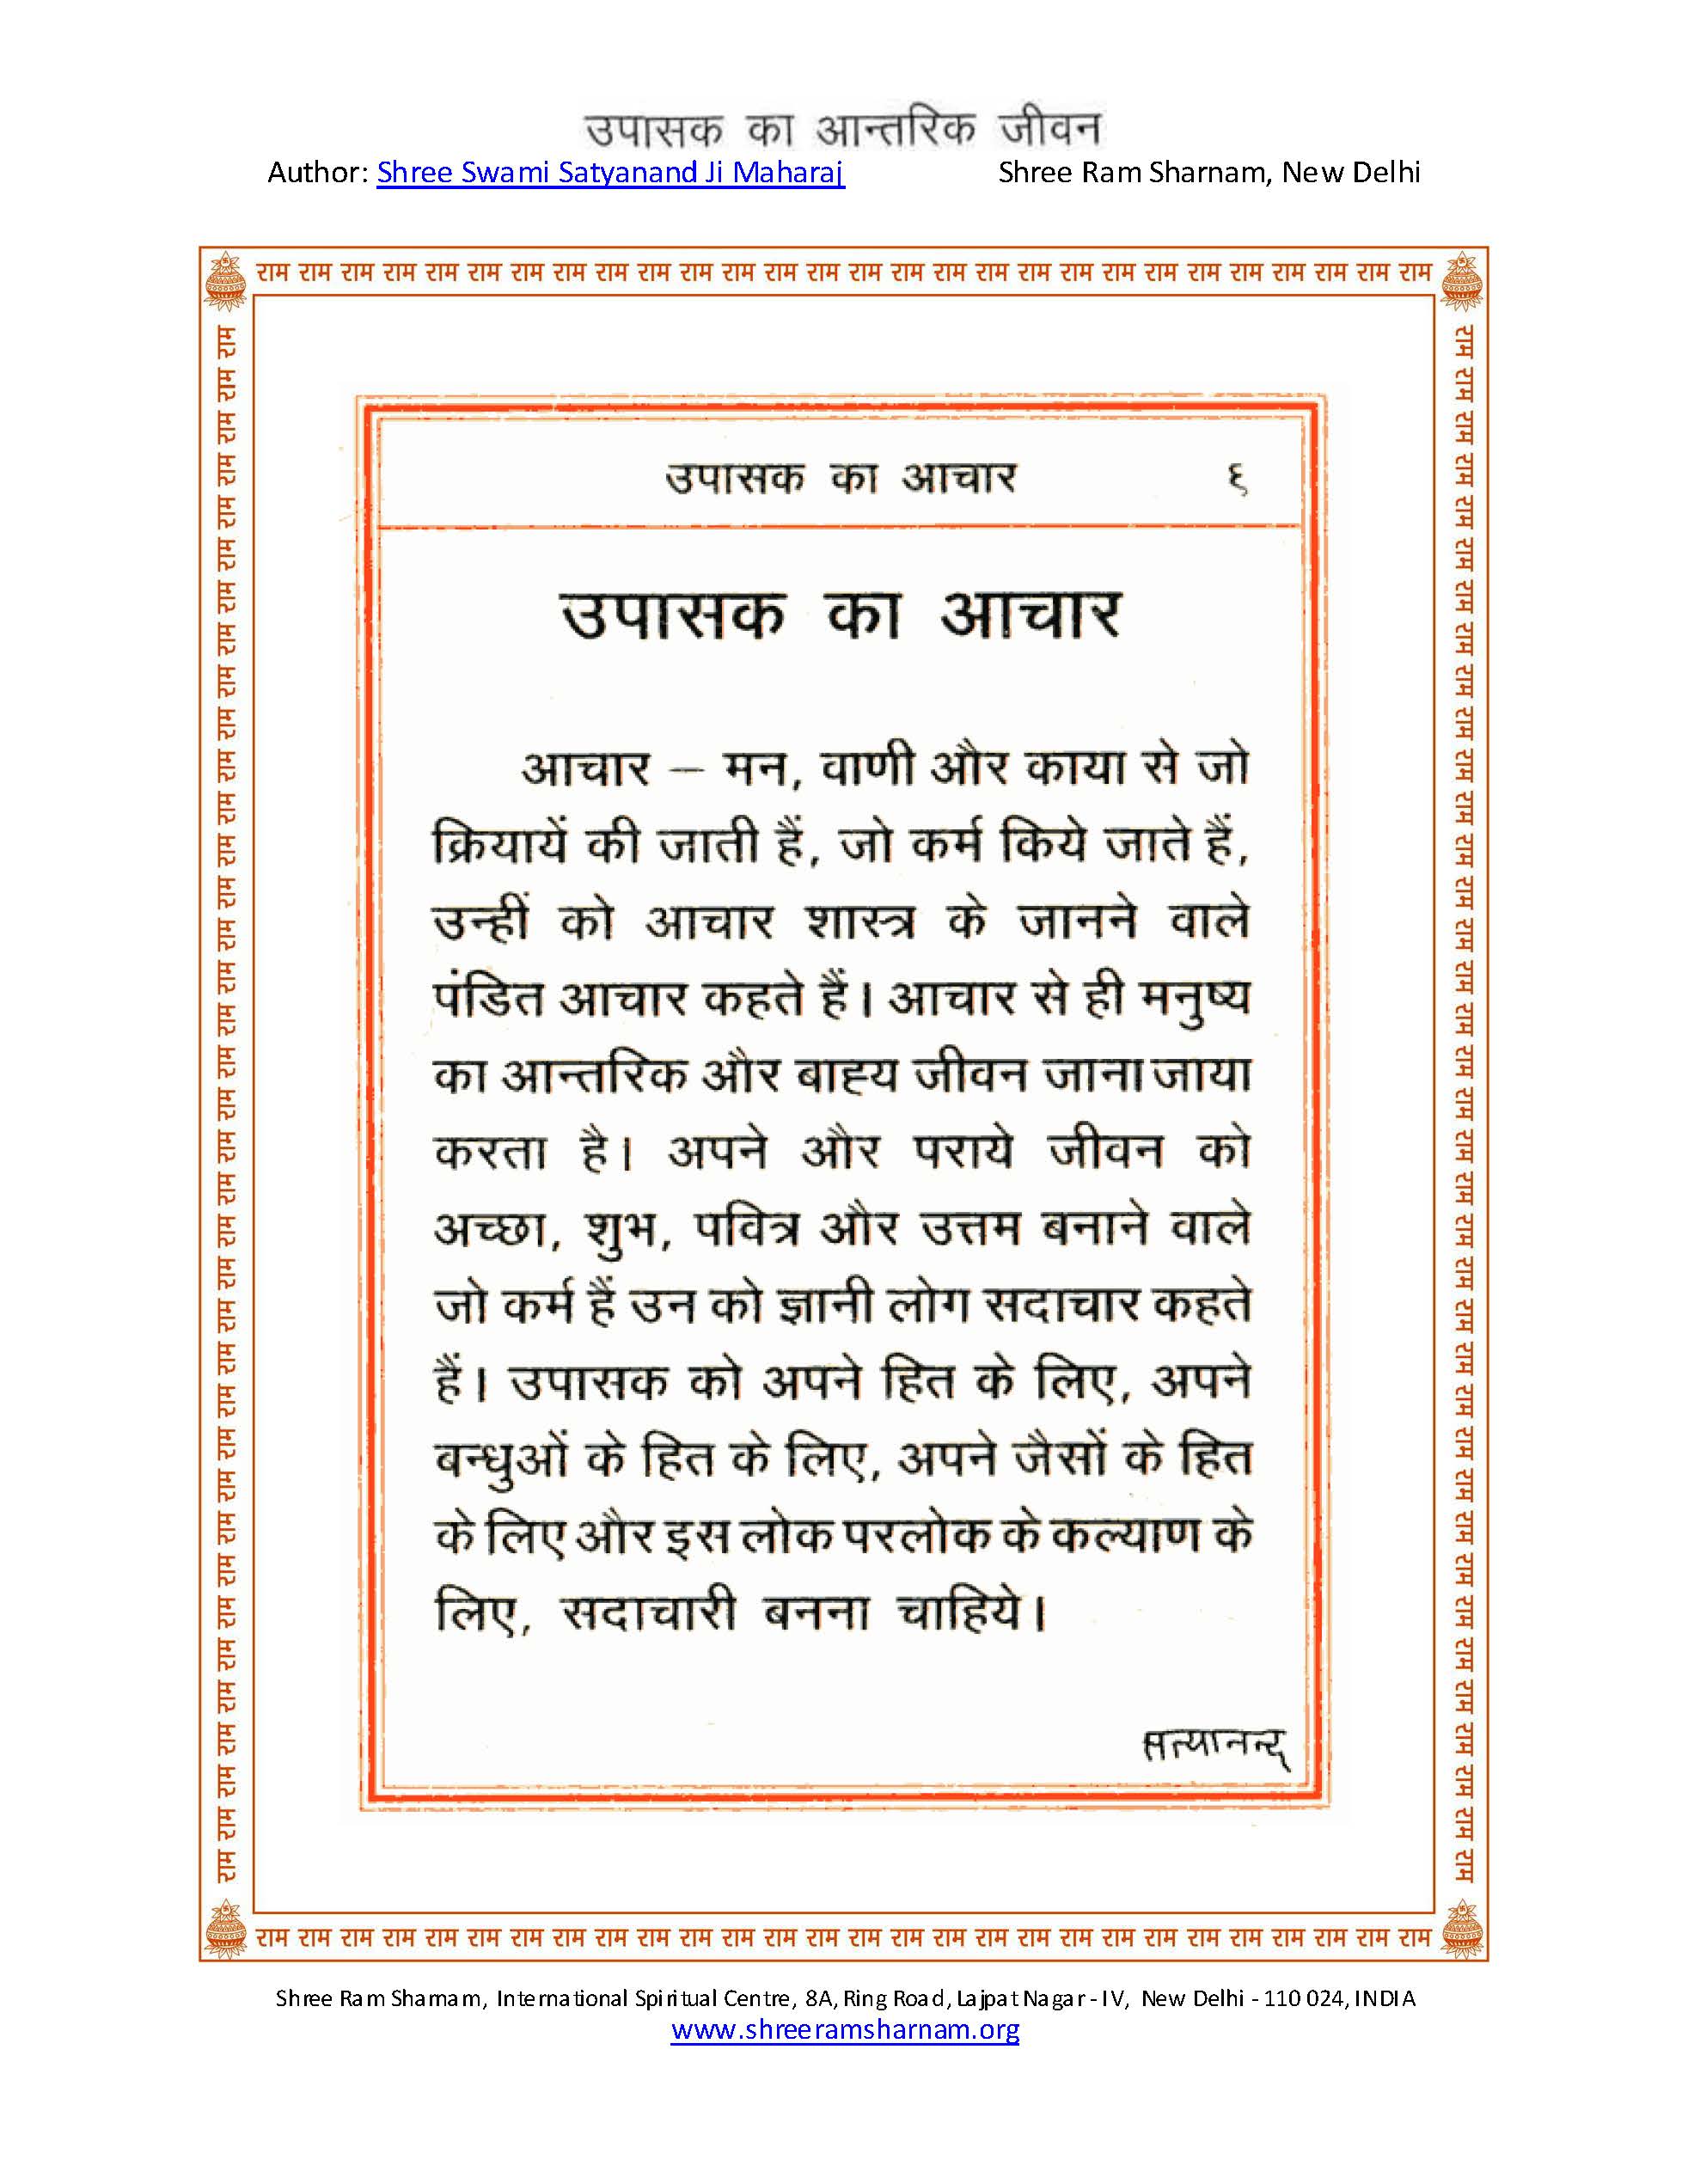 उपासक का आन्तरिक जीवन
Author: Shree Swami Satyanand Ji Maharaj Shree Ram Sharnam, New Delhi
राम राम राम राम राम राम राम राम राम राम राम राम राम राम राम राम राम राम राम राम राम राम राम राम राम राम राम राम
उपासक का आचार ६
उपासक का आचार
आचार – मन, वाणी और काया से जो
क्रियायें की जाती हैं, जो कर्म किये जाते हैं,
उन्हीं को आचार शास्त्र के जानने वाले
पंडित आचार कहते हैं। आचार से ही मनुष्य
का आन्तरिक और बाह्य जीवन जाना जाया
करता है। अपने और पराये जीवन को
अच्छा, शुभ, पवित्र और उत्तम बनाने वाले
जो कर्म हैं उन को ज्ञानी लोग सदाचार कहते
हैं। उपासक को अपने हित के लिए, अपने
बन्धुओं के हित के लिए, अपने जैसों के हित
के लिए और इस लोक परलोक के कल्याण के
लिए, सदाचारी बनना चाहिये।
सत्यानन्द
राम राम राम राम राम राम राम राम राम राम राम राम राम राम राम राम राम राम राम राम राम राम राम राम राम राम राम राम राम राम राम राम राम राम राम राम राम
राम राम राम राम राम राम राम राम राम राम राम राम राम राम राम राम राम राम राम राम राम राम राम राम राम राम राम राम राम राम राम राम राम राम राम राम राम
राम राम राम राम राम राम राम राम राम राम राम राम राम राम राम राम राम राम राम राम राम राम राम राम राम राम राम राम
Shree Ram Sharnam, International Spiritual Centre, 8A, Ring Road, Lajpat Nagar - IV, New Delhi - 110 024, INDIA
www.shreeramsharnam.org